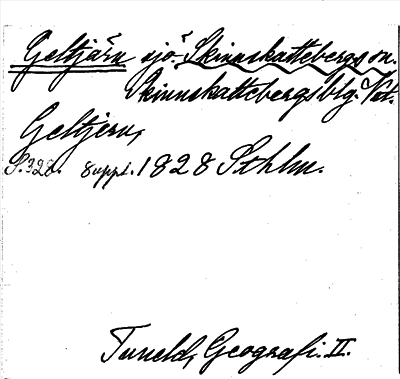 Geltjärn sjö. Skinnskattebergs sn.
Skinnskattebergs blg. Vstm.
Geltjern,
S. 328. 8 uppl. 1828 Sthlm.
Tuneld, Geografi. II.